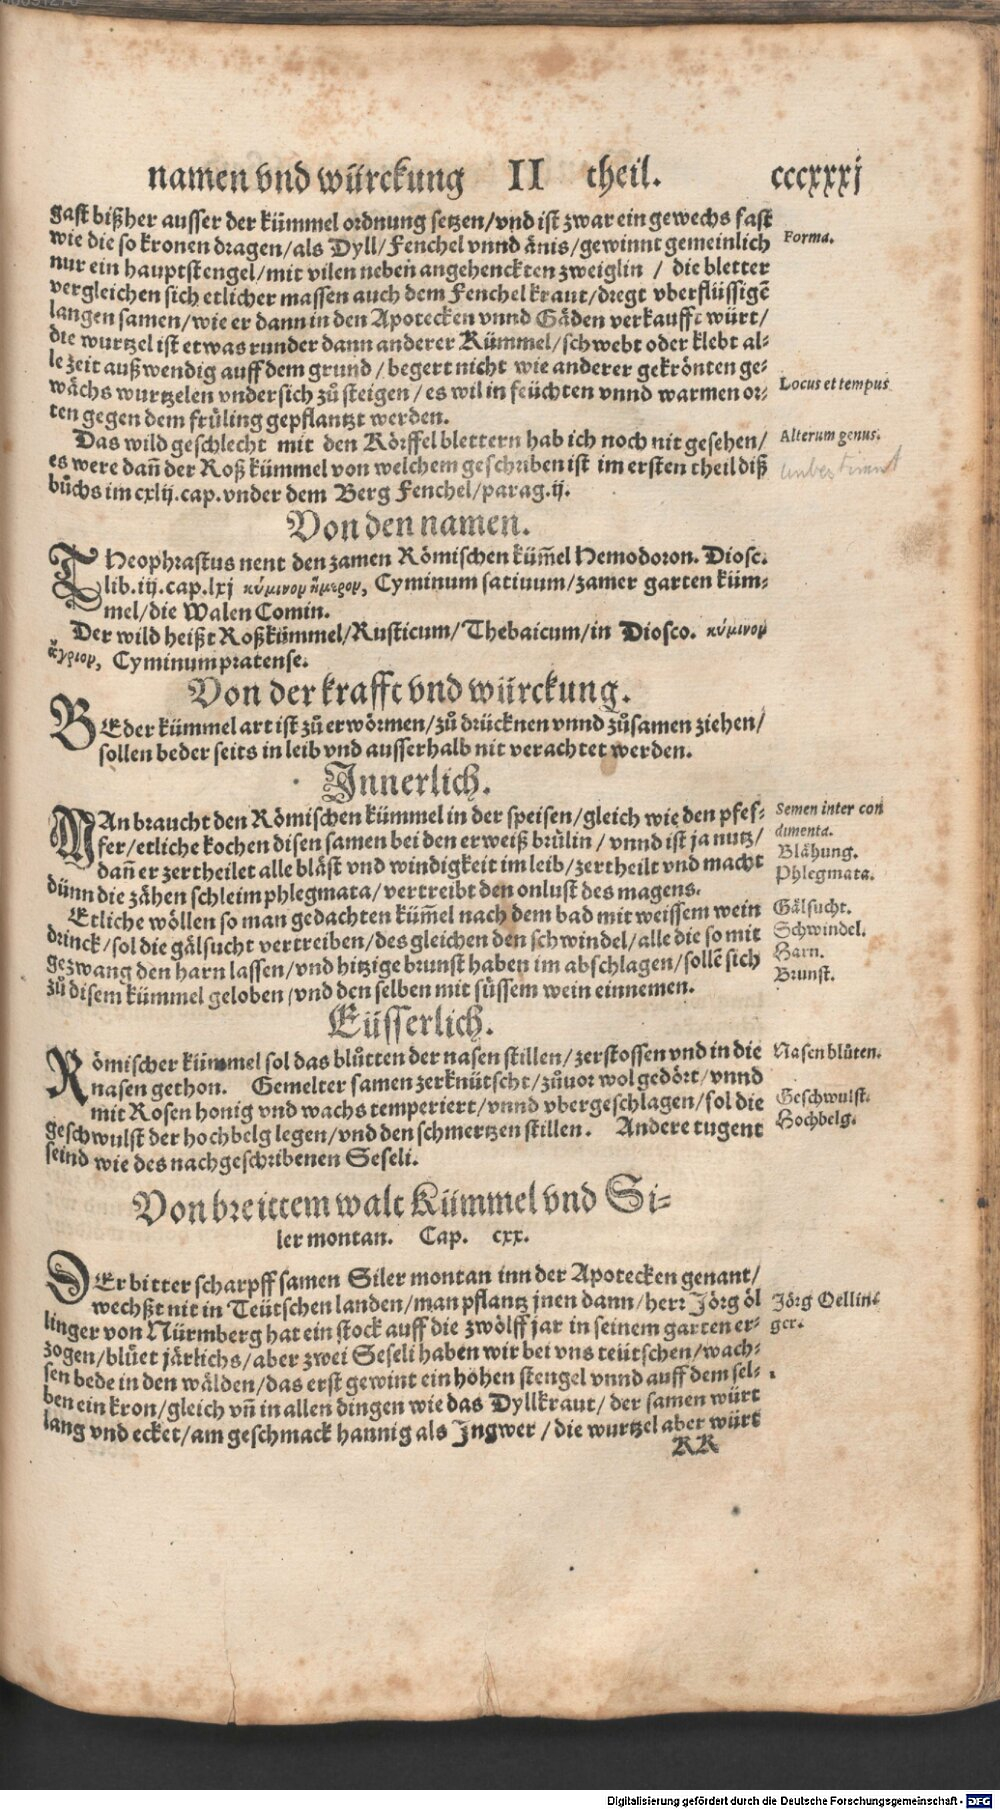 namen vnd würckung II theil. cccxxxj
gast bißher ausser der kümmel ordnung setzen/vnd ist zwar ein gewechs fast
wie die so kronen dragen/als Dyll/Fenchel vnnd änis/gewinnt gemeinlich
Forma.
nur ein hauptstengel/mit vilen neben angehenckten zweiglin / die bletter
vergleichen sich etlicher massen auch dem Fenchel kraut/dregt vberflüssigē
langen samen/wie er dann in den Apotecken vnnd Gäden verkaufft würt/
die wurtzel ist etwas runder dann anderer Kümmel/schwebt oder klebt al-
le zeit außwendig auff dem grund/begert nicht wie anderer gekrönten ge-
wächs wurtzelen vndersich zů steigen/es wil in feüchten vnnd warmen or-
Locus et tempus
ten gegen dem früling gepflantzt werden.
Das wild geschlecht mit den Körffel blettern hab ich noch nit gesehen/
Alterum genus.
es were dañ der Roß kümmel von welchem geschriben ist im ersten theil diß
bůchs im cxlij.cap.vnder dem Berg Fenchel/parag.ij.
Von den namen.
THeophrastus nent den zamen Römischen küm̄el Hemodoron. Diosc.
lib.iij.cap.lxj κύμινον ἥμερον, Cyminum satiuum/zamer garten küm-
mel/die Walen Comin.
Der wild heißt Roßkümmel/Rusticum/Thebaicum/in Diosco. κύμινον
ἄγριον, Cyminum pratense.
Von der krafft vnd würckung.
BEder kümmel art ist zů erwörmen/zů drücknen vnnd zůsamen ziehen/
sollen beder seits in leib vnd ausserhalb nit verachtet werden.
Innerlich.
MAn braucht den Römischen kümmel in der speisen/gleich wie den pfef-
Semen inter con
fer/etliche kochen disen samen bei den erweiß brülin/vnnd ist ja nutz/
dimenta.
dañ er zertheilet alle bläst vnd windigkeit im leib/zertheilt vnd macht
Blähung.
dünn die zähen schleim phlegmata/vertreibt den onlust des magens.
Phlegmata.
Etliche wöllen so man gedachten küm̄el nach dem bad mit weissem wein
Gälsucht.
drinck/sol die gälsucht vertreiben/des gleichen den schwindel/alle die so mit
Schwindel.
gezwang den harn lassen/vnd hitzige brunst haben im abschlagen/sollē sich
Harn.
Brunst.
zů disem kümmel geloben/vnd den selben mit süssem wein einnemen.
Eüsserlich.
Römischer kümmel sol das blůtten der nasen stillen/zerstossen vnd in die
Nasen blůten.
nasen gethon. Gemelter samen zerknütscht/zůuor wol gedört/vnnd
mit Rosen honig vnd wachs temperiert/vnnd vbergeschlagen/sol die
Geschwulst.
geschwulst der hochbelg legen/vnd den schmertzen stillen. Andere tugent
Hochbelg.
seind wie des nachgeschribenen Seseli.
Von breittem walt Kümmel vnd Si-
ler montan. Cap. cxx.
DEr bitter scharpff samen Siler montan inn der Apotecken genant/
wechßt nit in Teütschen landen/man pflantz jnen dann/herr Jörg öl
Jörg Oellin-
linger von Nürmberg hat ein stock auff die zwölff jar in seinem garten er-
ger.
zogen/blüet järlichs/aber zwei Seseli haben wir bei vns teütschen/wach-
sen bede in den wälden/das erst gewint ein hohen stengel vnnd auff dem sel-
ben ein kron/gleich vñ in allen dingen wie das Dyllkraut/der samen würt
lang vnd ecket/am geschmack hannig als Ingwer/die wurtzel aber würt
KK
Digitalisierung gefördert durch die Deutsche Forschungsgemeinschaft - DFG